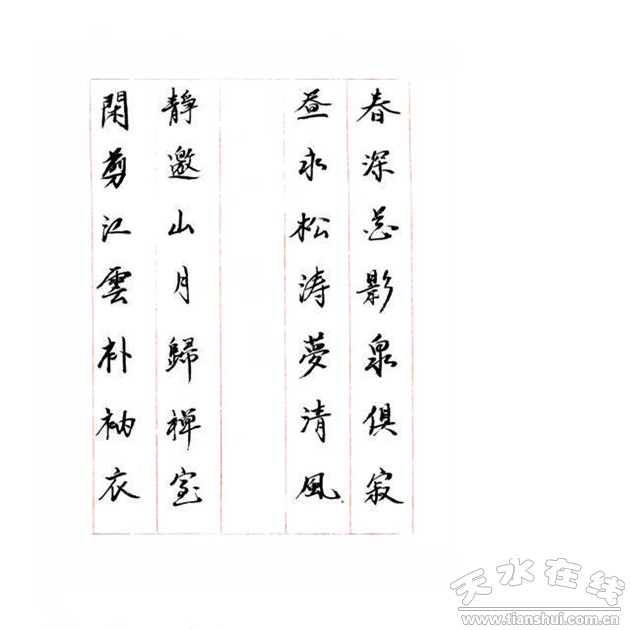 春深花影泉俱寂
昼永松涛夢清風
靜邀山月歸禅室
閑剪江雲补衲衣
天水在线
www.tianshui.com.cn